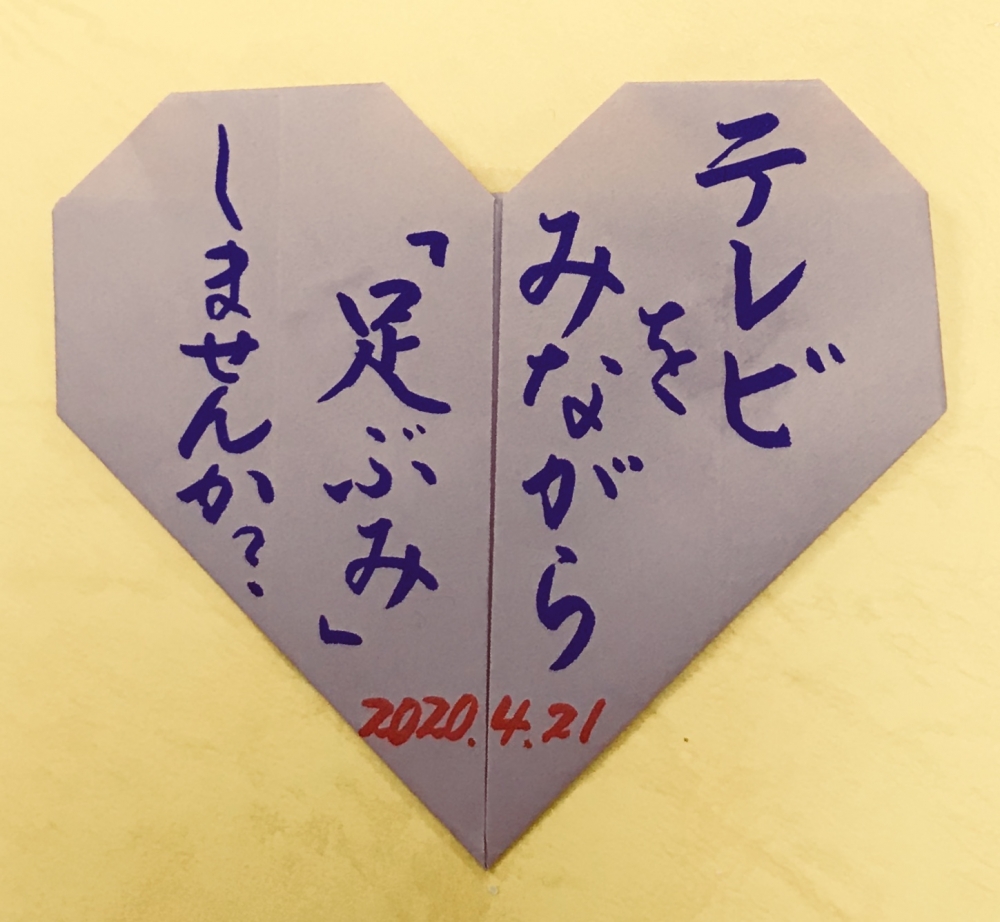 テレビ
を
みながら
「足ぶみ」
しませんか?
2020.4.21